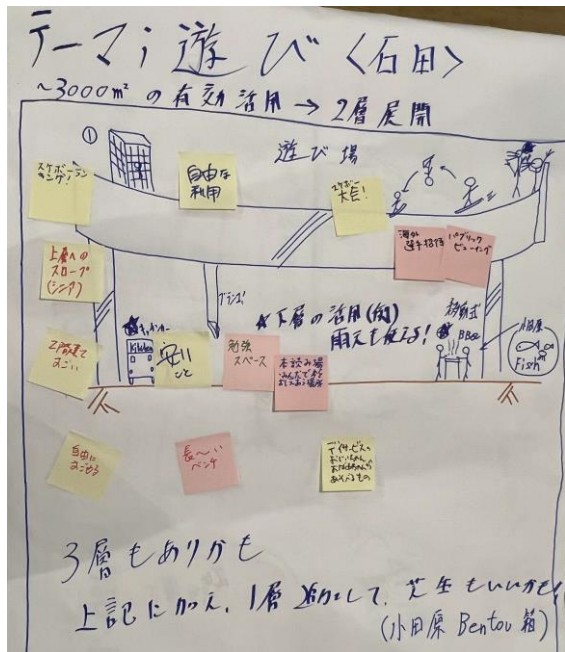 テーマ；遊び〈石田〉
~3000m² の有効活用→2層展開
①
遊び場
スケボーランキング！
自由な利用
スケボー大会！
海外選手招待
パブリックビューイング
上層へのスロープ(シニア)
ブランコ！
★下層の活用(例)
雨天も使える！
移動式
BBQ
小田原
Fish
キッチンカー
Kitchen
安いこと
勉強スペース
本読み場
2階建てすごい
自由にすごせる
長〜いベンチ
デイサービスの
おじいちゃん
おばあちゃんが
あそべるもの
3層もありかも
上記に加え、1層追加して、芝生もいいかも！
(小田原 Bentou 箱)